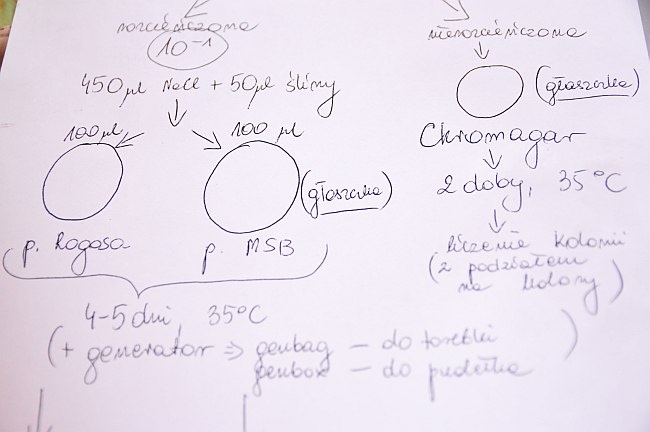 rozcieńczona
10⁻¹
450 µl NaCl + 50 µl śliny
100 µl
100 µl
(głaszczka)
p. Rogosa
p. MSB
4-5 dni, 35°C
(+ generator => genbag – do torebki
genbox – do pudełka)
nierozcieńczona
(głaszczka)
Chromagar
2 doby, 35°C
liczenie kolonii
(z podziałem
na kolory)